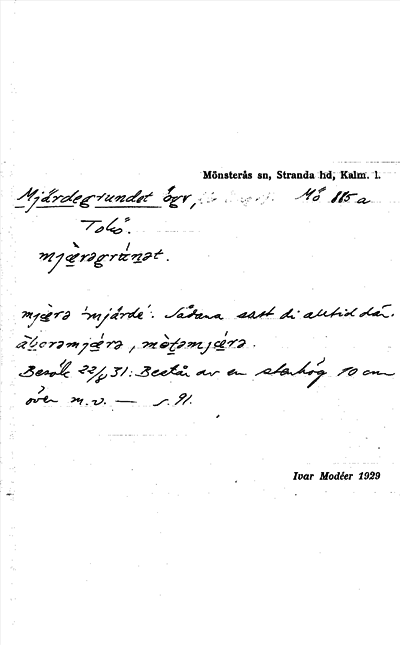 Mönsterås sn, Stranda hd, Kalm. l.
Mjärdegrundet ögr, Mö 885a
Tokö.
mjæ̀rəgrúnət.
mjæ̀rə 'mjärde'. Sådana satt di alltid där.
àbɔrəmjæ̀rə, mø̀təmjæ̀rə.
Besök 22/8 31: Består av en stenhög 10 cm
över m.v. — s. 91.
Ivar Modéer 1929